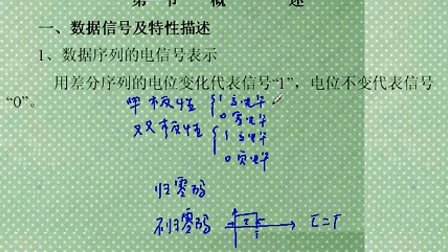 第 节 概 述
一、数据信号及特性描述
1、数据序列的电信号表示
用差分序列的电位变化代表信号“1”，电位不变代表信号
“0”。
单极性 { 1 高电平
0 零电平
双极性 { 1 高电平
0 负电平
归零码
不归零码 τ=T